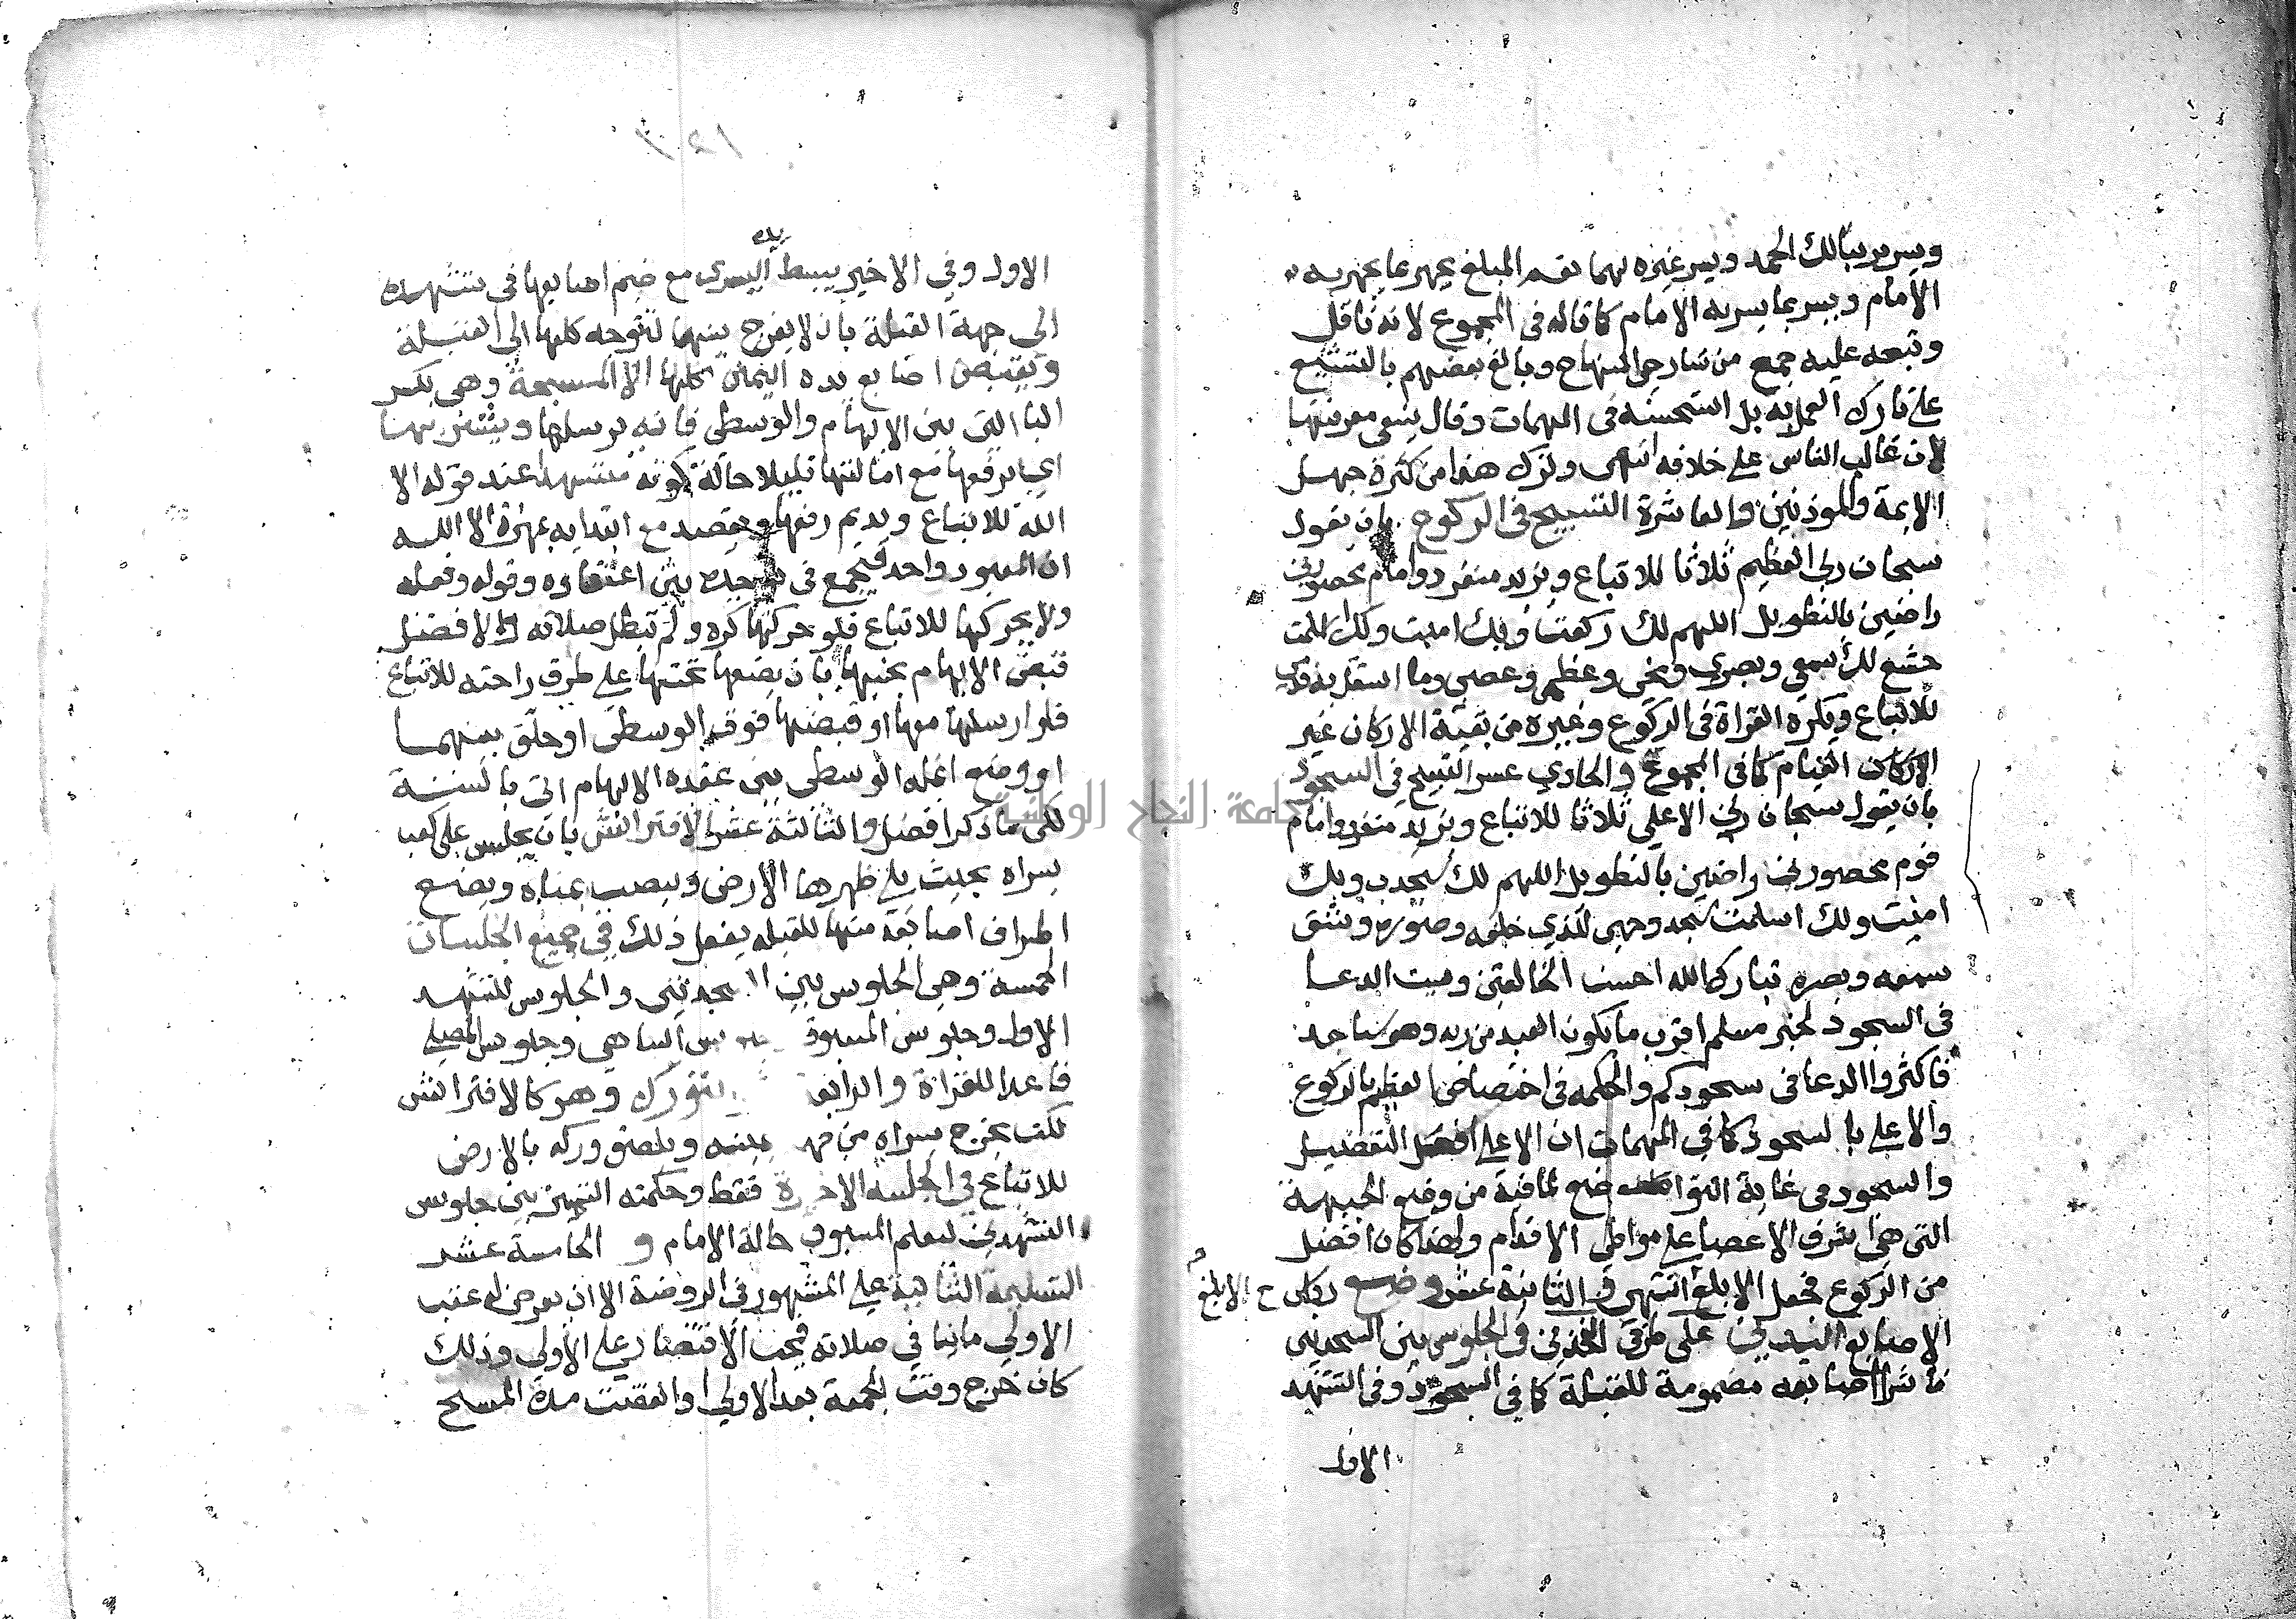 ويسر بربنا لك الحمد ويسر غيره بهما نعم المبلغ يجهر بما يجهر به
الامام ويسر بما يسر به الامام كما قاله في المجموع لانه ناقل
وتبعه عليه جمع من شارحي المنهاج وبالغ بعضهم بالتشنيع
على تارك العمل به بل استحسنه في المهمات وقال ينبغي معرفتها
لان غالب الناس على خلافه انتهى وترك هذا من كثرة جهل
الايمة والموذنين والعاشرة التسبيح في الركوع بان يقول
سبحان ربي العظيم ثلاثا للاتباع ويزيد منفرد وامام محصورين
راضين بالتطويل اللهم لك ركعت وبك امنت ولك اسلمت
خشع لك سمعي وبصري ومخي وعظمي وعصبي وما استقل به قدمي
للاتباع ويكره القراة في الركوع وغيره من بقية الاركان غير
الاركان القيام كما في المجموع والحادي عشر التسبيح في السجود
بان يقول سبحان ربي الاعلى ثلاثا للاتباع ويزيد منفرد وامام
قوم محصورين راضين بالتطويل اللهم لك سجدت وبك
امنت ولك اسلمت سجد وجهي للذي خلقه وصوره وشق
سمعه وبصره تبارك الله احسن الخالقين وميت الدعا
في السجود لخبر مسلم اقرب ما يكون العبد من ربه وهو ساجد
فاكثروا الدعا في سجودكم والحكمه في اختصاص العظيم بالركوع
والاعلى بالسجود كما في المهمات ان الاعلى افعل التفضيل
والسجود في غاية التواضع لما فيه من وضع الجبهة
التي هي اشرف الاعضا على مواطي الاقدام ولهذا كان افضل
من الركوع فجعل الابلغ انتهى والثانية عشر وضع روس ح الابلغ
الاصابع اليدين على طرفي الفخذين في الجلوس بين السجدتين
ناشرا اصابعه مضمومة للقبلة كما في السجود وفي التشهد
الاول
الاول وفي الاخير يبسط يده اليسرى مع ضم اصابعها في تشهده
الى جهة القبلة بان لا يفرج بينها لتتوجه كلها الى القبلة
ويقبض اصابع يده اليمنى كلها الا المسبحة وهي بكسر
البا التي بين الابهام والوسطى فانه يرسلها ويشير بها
اي يرفعها مع امالتها قليلا حالة كونه متشهدا عند قوله الا
الله للاتباع ويديم رفعها ويقصد مع ابتدايه بهمزة الا الله
ان المعبود واحد فيجمع في توحيده بين اعتقاده وقوله وفعله
ولا يحركها للاتباع فلو حركها كره ولم تبطل صلاته والافضل
قبض الابهام بجنبها بان يضعها تحتها على طرف راحته للاتباع
فلو ارسلها معها او قبضها فوق الوسطى او حلق بينهما
او وضع انمله الوسطى بين عقده الابهام اتى بالسنة
لكن ما ذكر افضل والثالثة عشر الافتراش بان يجلس على كعب
يسراه بحيث يلي ظهرها الارض وينصب يمناه ويضع
اطراف اصابعه منها للقبله يفعل ذلك في جميع الجلسات
الخمسة وهي الجلوس بين السجدتين والجلوس للتشهد
الاول وجلوس المسبوق وجلوس الساهي وجلوس المصلي
قاعدا للقراة والرابعة التورك وهو كالافتراش
لكن يخرج يسراه من جهة يمينه ويلصق وركه بالارض
للاتباع في الجلسة الاخيرة فقط وحكمته التمييز بين جلوس
التشهدين ليعلم المسبوق حالة الامام والخامسة عشر
التسليمة الثانية على المشهور في الروضة الا ان يعرض له عقب
الاولى ما ينافي صلاته فيجب الاقتصار على الاولى وذلك
كان خرج وقت الجمعة بعد الاولى او انقضت مدة المسح
جامعة النجاح الوطنية